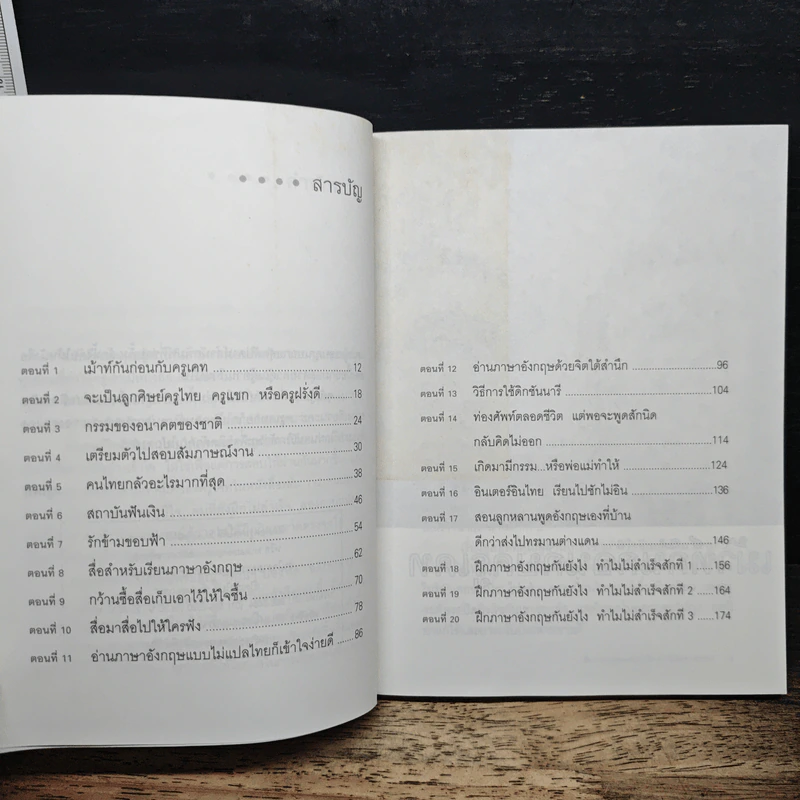 สารบัญ
ตอนที่ 1 เม้าท์กันก่อนกับครูเคท ........................................12
ตอนที่ 2 จะเป็นลูกศิษย์ครูไทย ครูแขก หรือครูฝรั่งดี .........18
ตอนที่ 3 กรรมของอนาคตของชาติ ........................................24
ตอนที่ 4 เตรียมตัวไปสอบสัมภาษณ์งาน ........................................30
ตอนที่ 5 คนไทยกลัวอะไรมากที่สุด ........................................38
ตอนที่ 6 สถาบันฟันเงิน ........................................46
ตอนที่ 7 รักข้ามขอบฟ้า ........................................54
ตอนที่ 8 สื่อสำหรับเรียนภาษาอังกฤษ ........................................62
ตอนที่ 9 กว้านซื้อสื่อเก็บเอาไว้ให้ใจชื้น ........................................70
ตอนที่ 10 สื่อมาสื่อไปให้ใครฟัง ........................................78
ตอนที่ 11 อ่านภาษาอังกฤษแบบไม่แปลไทยก็เข้าใจง่ายดี ......86
ตอนที่ 12 อ่านภาษาอังกฤษด้วยจิตใต้สำนึก ........................96
ตอนที่ 13 วิธีการใช้ดิกชันนารี ........................................104
ตอนที่ 14 ท่องศัพท์ตลอดชีวิต แต่พอจะพูดสักนิด
กลับคิดไม่ออก ........................................114
ตอนที่ 15 เกิดมามีกรรม...หรือพ่อแม่ทำให้ ........................124
ตอนที่ 16 อินเตอร์อินไทย เรียนไปซักไม่อิน ........................136
ตอนที่ 17 สอนลูกหลานพูดอังกฤษเองที่บ้าน
ดีกว่าส่งไปทรมานต่างแดน ........................146
ตอนที่ 18 ฝึกภาษาอังกฤษกันยังไง ทำไมไม่สำเร็จสักที 1 ......156
ตอนที่ 19 ฝึกภาษาอังกฤษกันยังไง ทำไมไม่สำเร็จสักที 2 ......164
ตอนที่ 20 ฝึกภาษาอังกฤษกันยังไง ทำไมไม่สำเร็จสักที 3 ......174